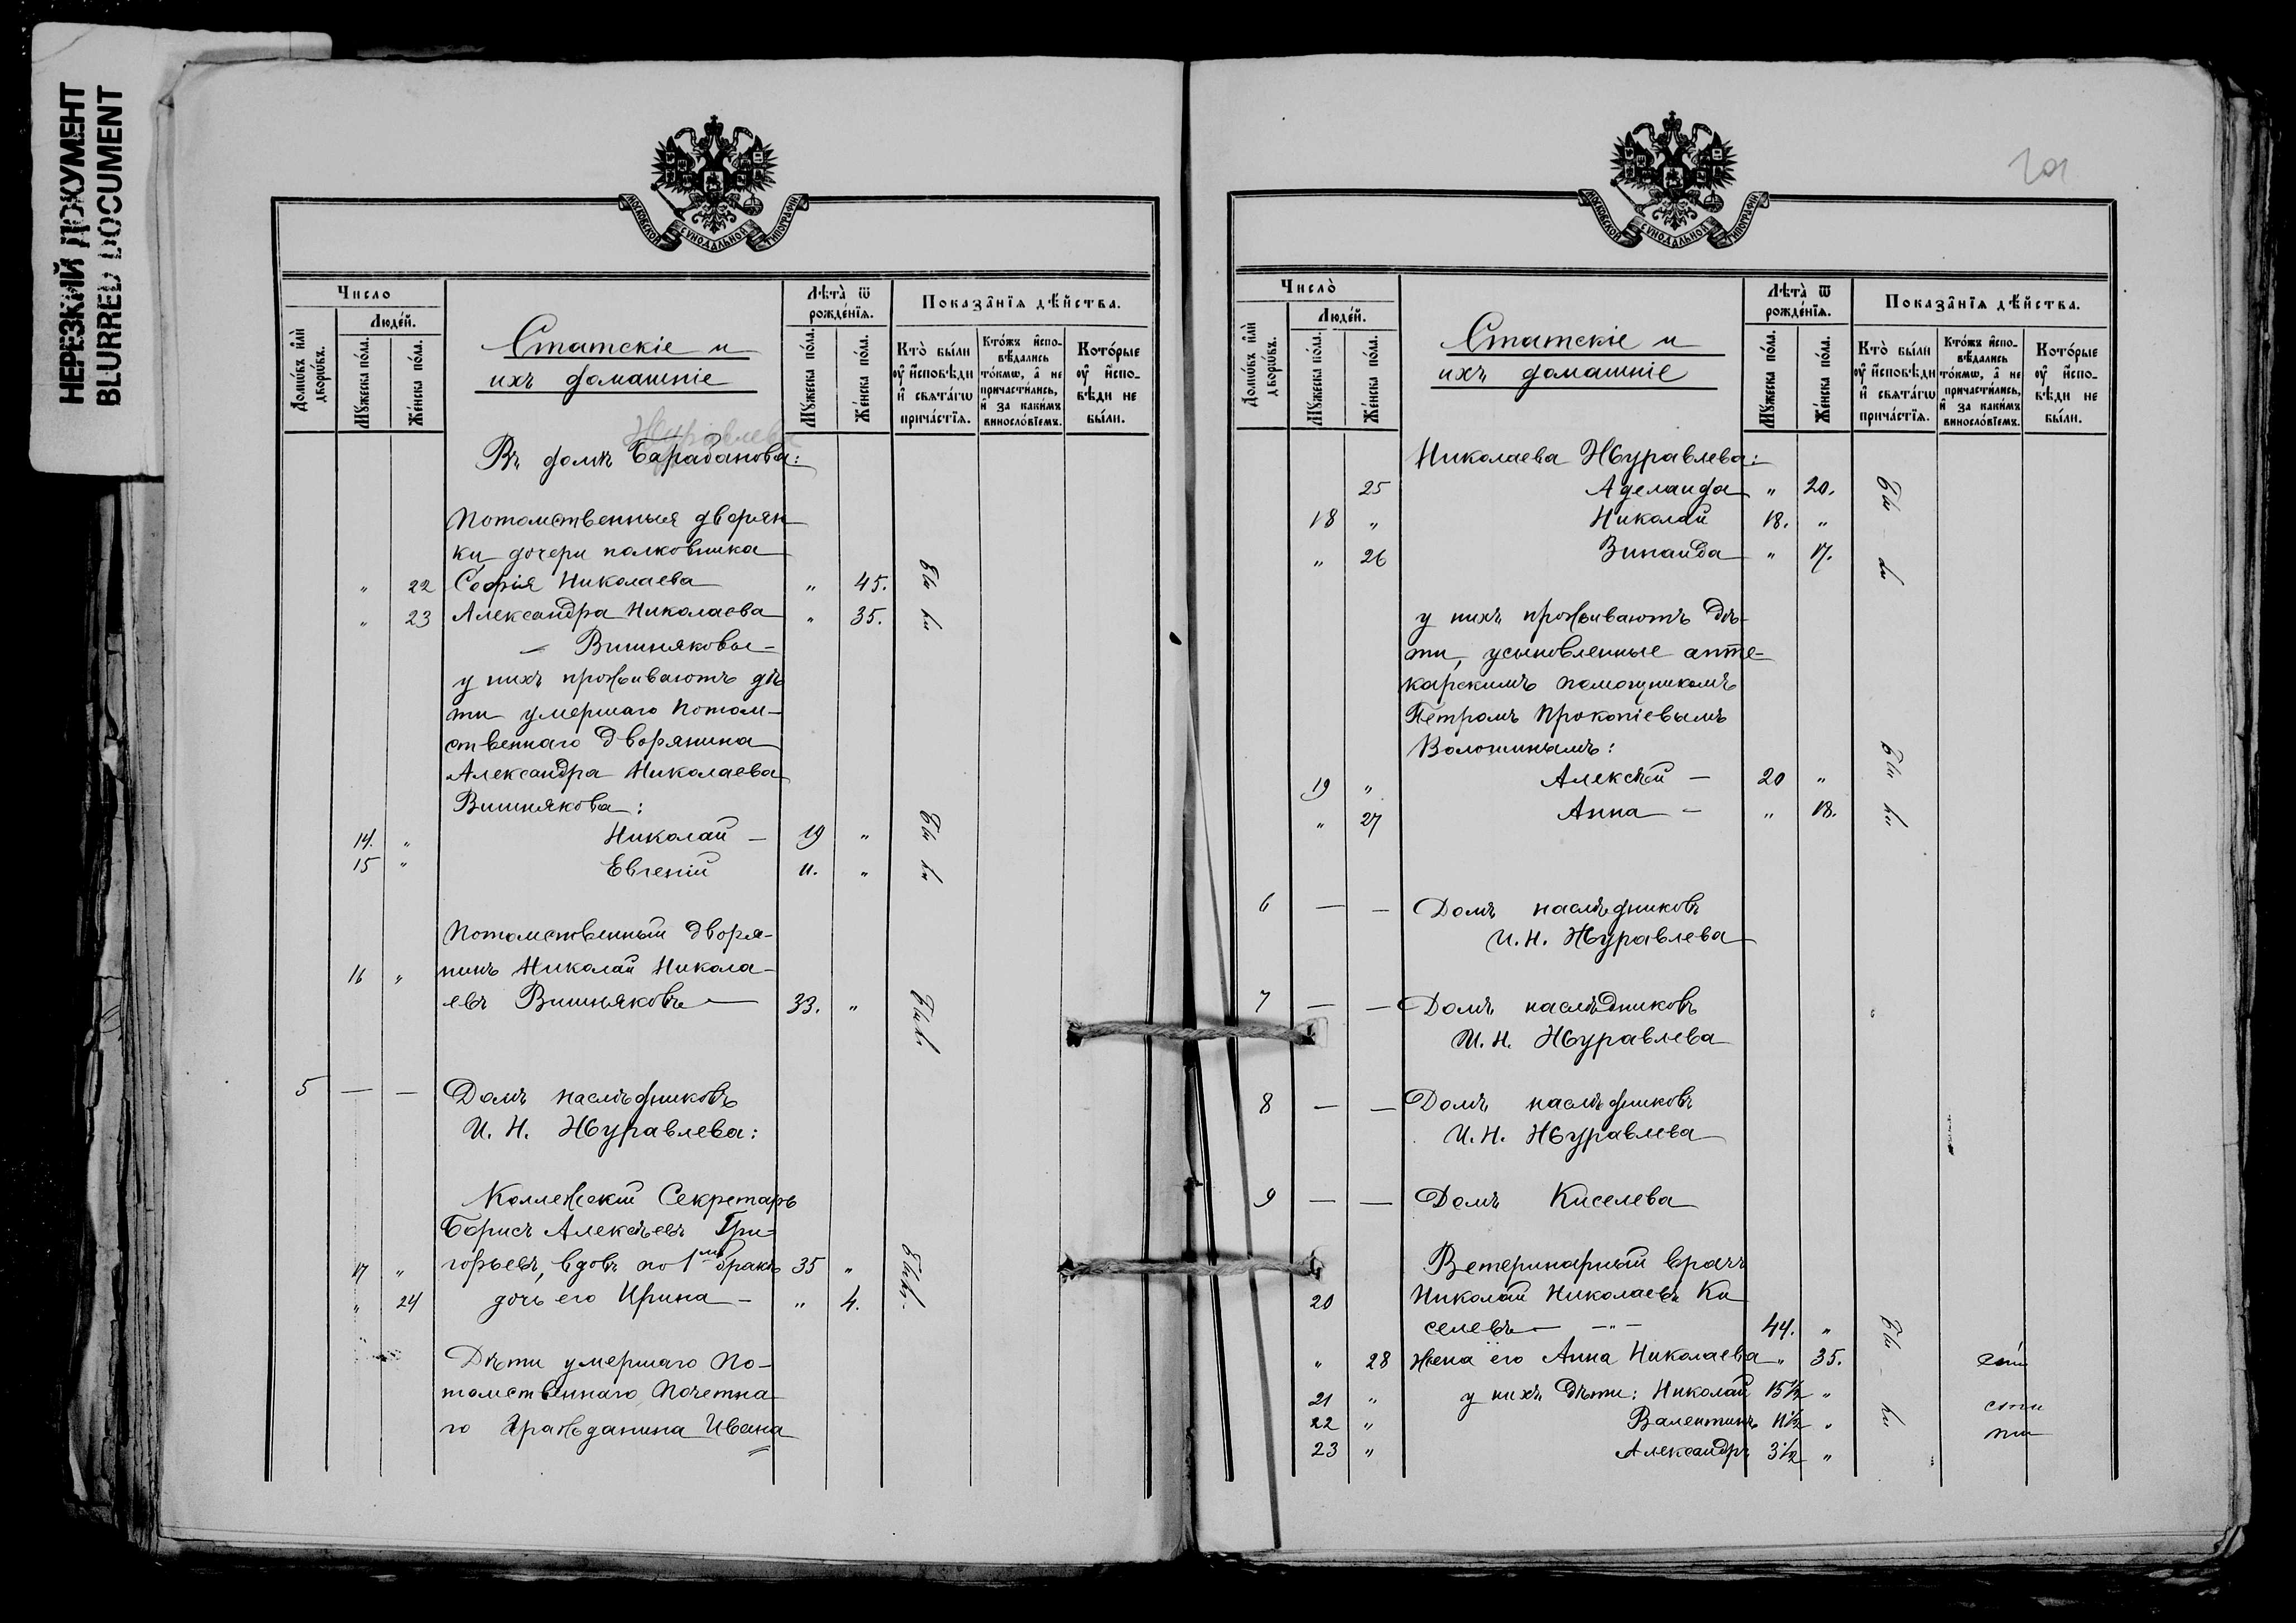 НЕРЕЗКИЙ ДОКУМЕНТ
BLURRED DOCUMENT
МОСКОВСКОЙ СѴНОДАЛЬНОЙ ТИПОГРАФІИ
Число
Людей.
Домовъ или дворовъ.
Мужеска пола.
Женска пола.
Статскіе и
ихъ домашніе
Лѣта ѿ рожденія.
Мужеска пола.
Женска пола.
Показанія дѣйства.
Кто были оу исповѣди и святагѡ причастія.
Ктожъ исповѣдались токмѡ, а не причастились, и за какимъ винословіемъ.
Которые оу исповѣди не были.
Журавлева
Въ домѣ Барабанова:
Потомственныя дворян
ки, дочери полковника
" 22 Софія Николаева " 45. Бы
" 23 Александра Николаева " 35. ли
Вишняковы –
у нихъ проживаютъ дѣ
ти умершаго потом-
ственнаго дворянина
Александра Николаева
Вишнякова:
14. " Николай – 19 " Бы
15 " Евгеній 11. " ли
Потомственный дворя-
16 " нинъ Николай Никола-
евъ Вишняковъ — 33. " Былъ
5 — — Домъ наслѣдниковъ
И. Н. Журавлева:
Коллежскій Секретарь
Борисъ Алексѣевъ Гри-
17 " горьевъ, вдовъ по 1мъ бракѣ 35 "
" 24 дочь его Ирина – " 4.
Дѣти умершаго По-
томственнаго Почетна
го Гражданина Ивана
МОСКОВСКОЙ СѴНОДАЛЬНОЙ ТИПОГРАФІИ
Число
Людей.
Домовъ или дворовъ.
Мужеска пола.
Женска пола.
Статскіе и
ихъ домашніе
Лѣта ѿ рожденія.
Мужеска пола.
Женска пола.
Показанія дѣйства.
Кто были оу исповѣди и святагѡ причастія.
Ктожъ исповѣдались токмѡ, а не причастились, и за какимъ винословіемъ.
Которые оу исповѣди не были.
Николаева Журавлева:
25 Аделаида " 20. Бы
18 " Николай 18. "
" 26 Зинаида " 17. ли
у нихъ проживаютъ дѣ-
ти, усыновленные апте-
карскимъ помощникомъ
Петромъ Прокопіевымъ
Волошинымъ:
19 " Алексѣй – 20 " Бы
" 27 Анна – " 18. ли
6 — — Домъ наслѣдниковъ
И. Н. Журавлева
7 — — Домъ наслѣдниковъ
И. Н. Журавлева
8 — — Домъ наслѣдниковъ
И. Н. Журавлева
9 — — Домъ Киселева
Ветеринарный врачъ
20 Николай Николаевъ Ки
селевъ — 44. " Бы
" 28 жена его Анна Николаева " 35.
21 " у нихъ дѣти: Николай 15½ "
22 " Валентинъ 11½ " ли
23 " Александръ 3½ "